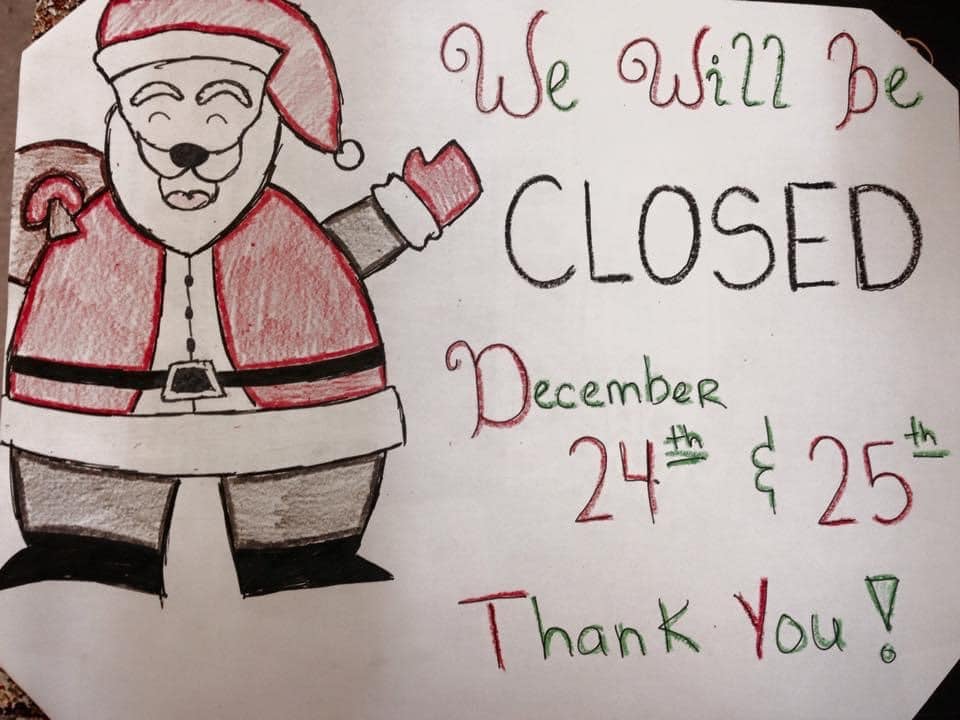 We Will be
CLOSED
December
24th & 25th
Thank You!